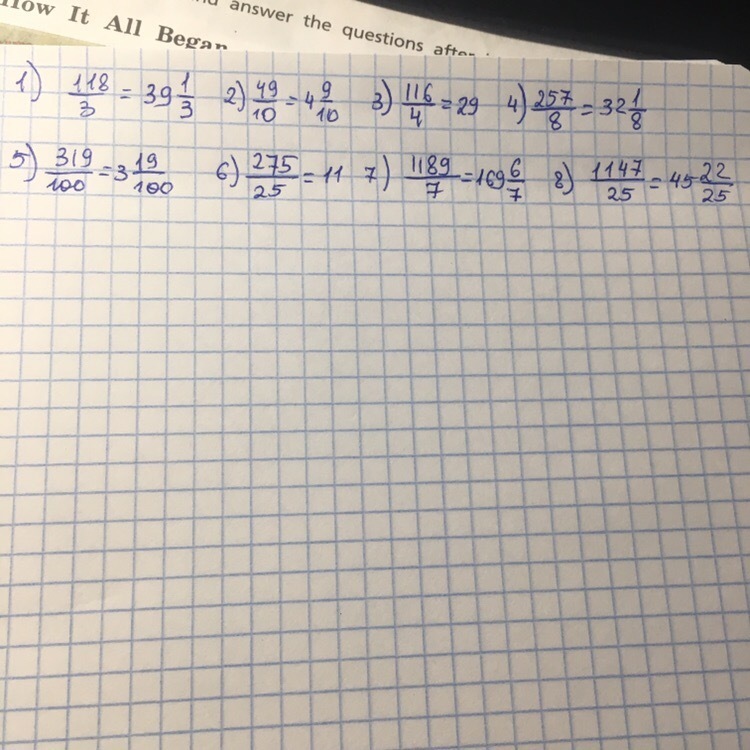 answer the questions after
How It All Began
1) 118/3 = 39 1/3 2) 49/10 = 4 9/10 3) 116/4 = 29 4) 257/8 = 32 1/8
5) 319/100 = 3 19/100 6) 275/25 = 11 7) 1189/7 = 169 6/7 8) 1147/25 = 45 22/25